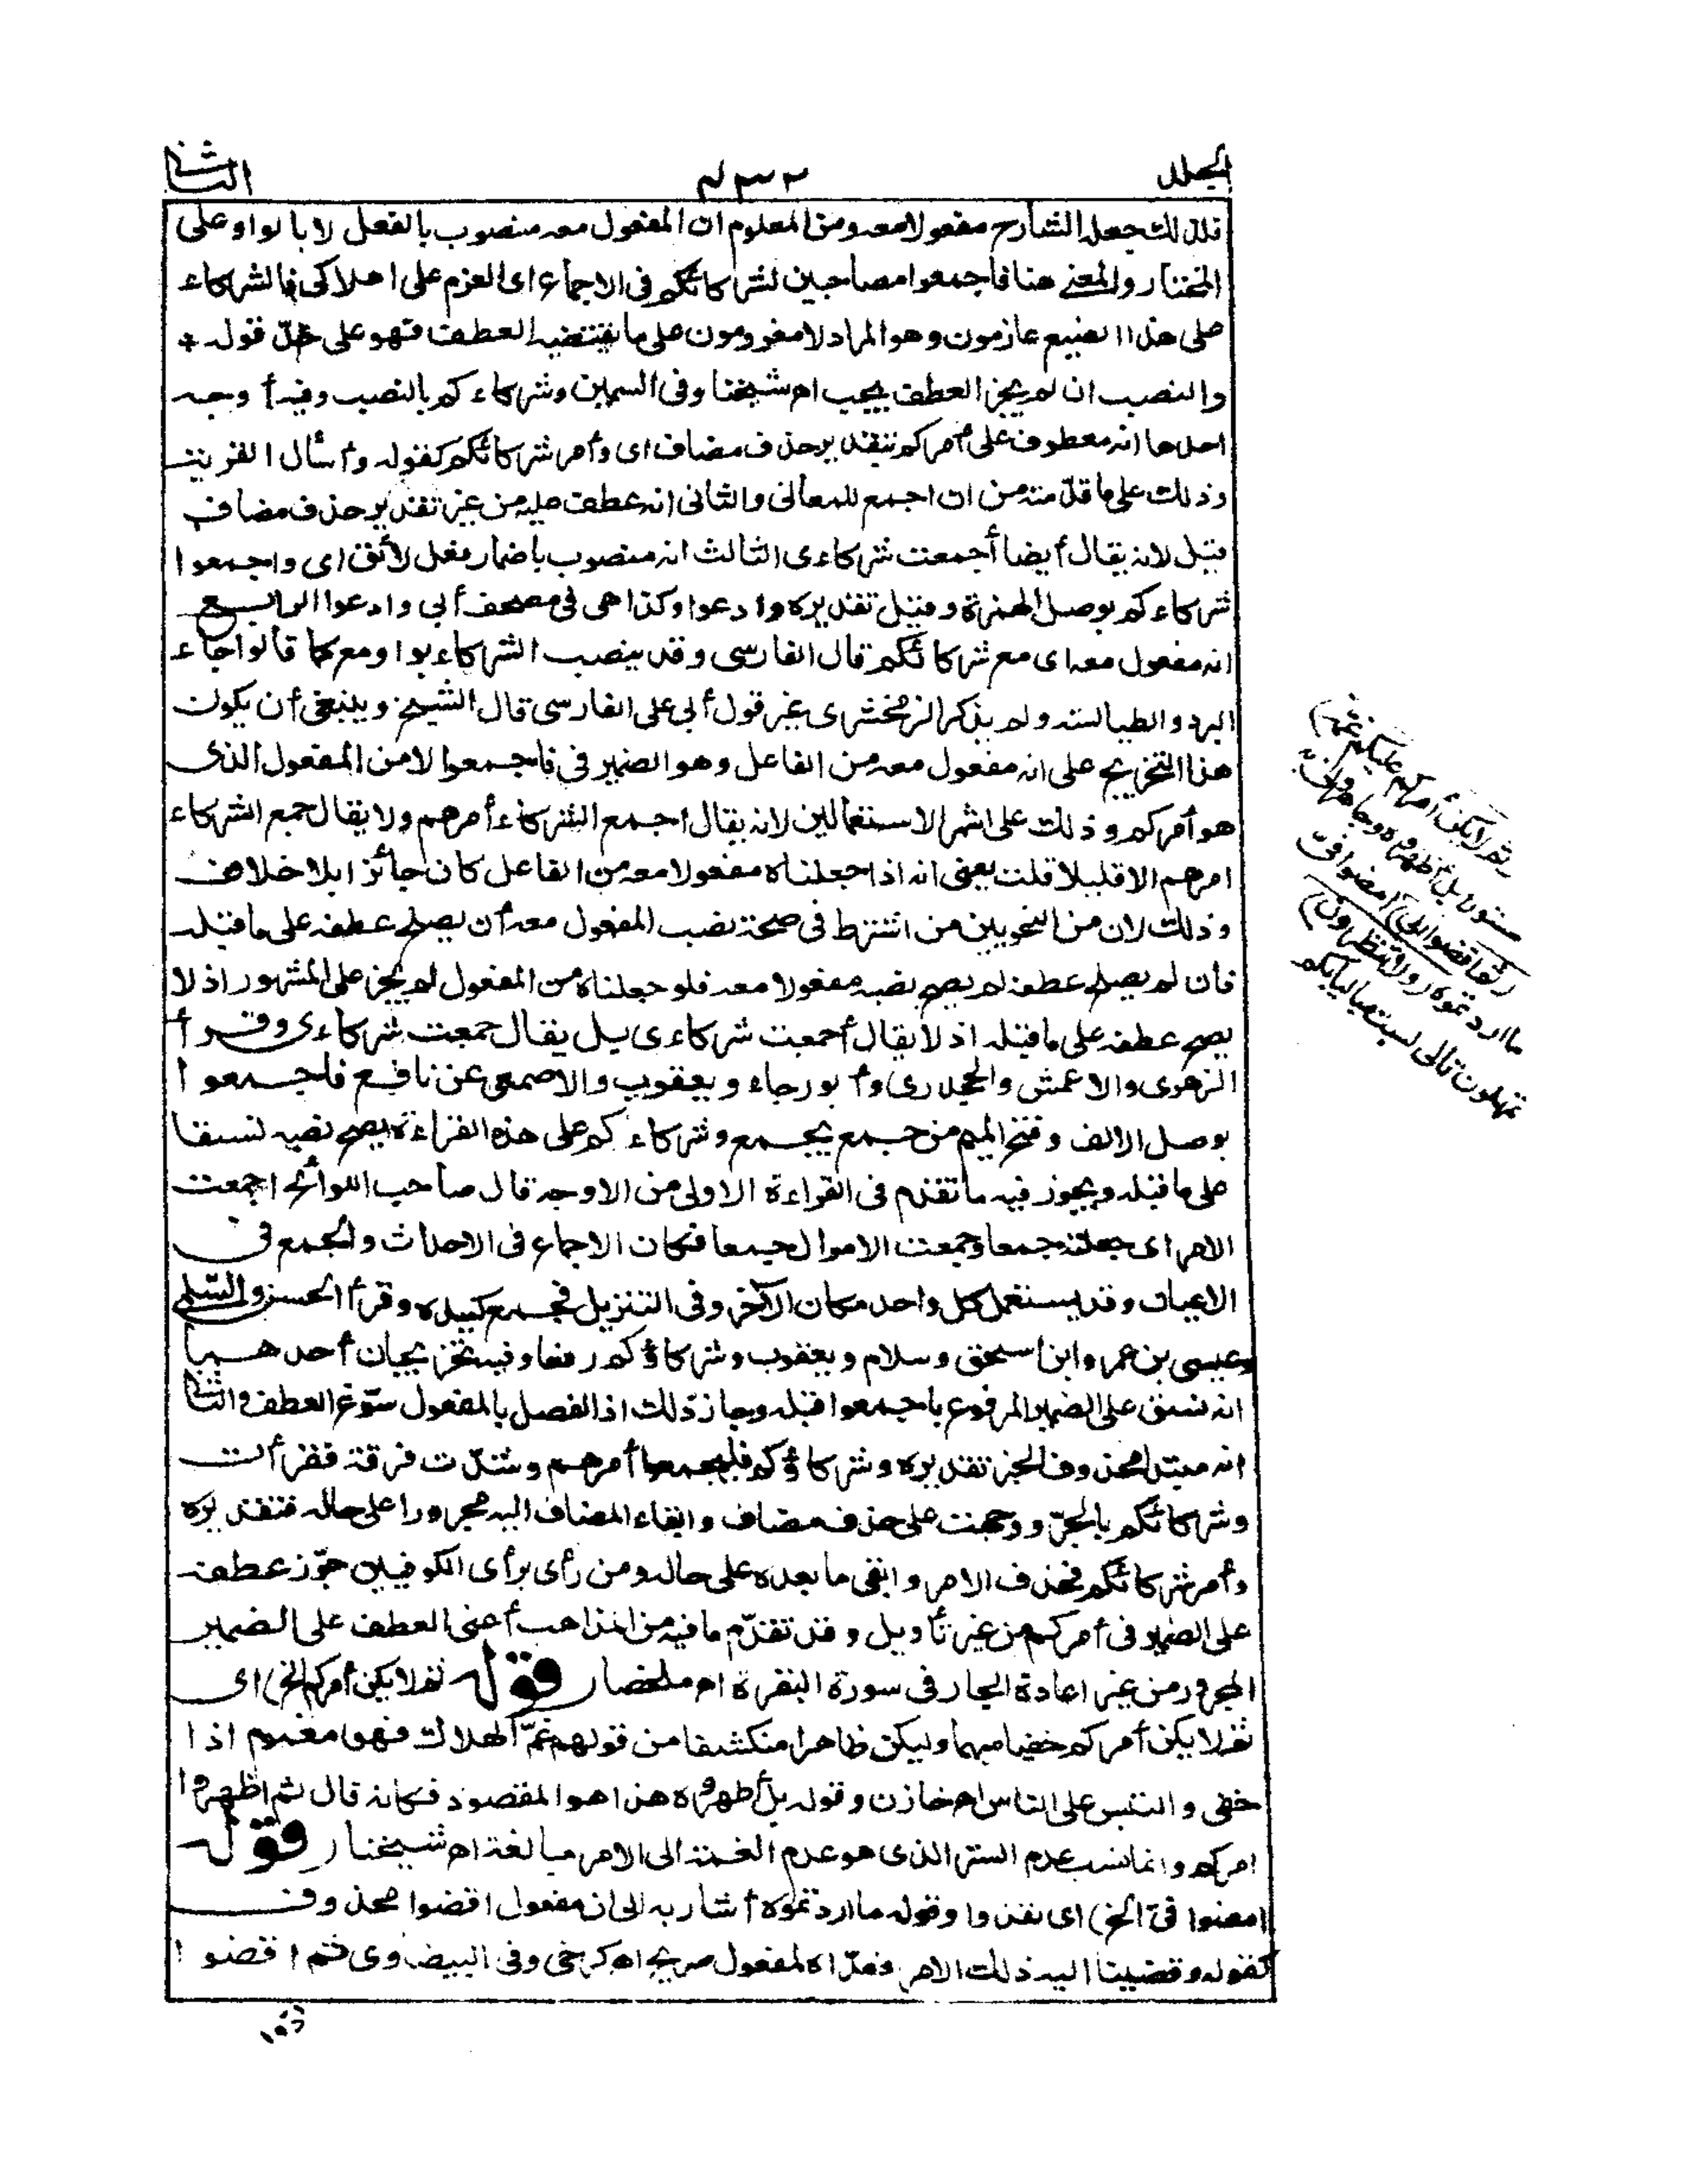 المجلد ٤٣٢ الثاني
فلذلك جعله الشارح مفعولا معه ومن المعلوم ان المفعول معه منصوب بالفعل لا بالواو على
المختار والمعنى هنا فاجمعوا مصاحبين لشركائكم فى الاجماع اى العزم على اهلاكى فالشركاء
على هذا الصنيع عازمون وهو المراد لا معزومون على ما يقتضيه العطف فهو على حدّ قوله *
والنصب ان لم يجز العطف يجب اه شيخنا وفى السمين وشركاءكم بالنصب وفيه أوجه
احدها انه معطوف على أمركم بتقدير حذف مضاف اى وأمر شركائكم كقوله وأسأل القرية
وذلك على ما قدّمته من ان اجمع للمعانى والثانى انه عطف عليه من غير تقدير حذف مضاف
قيل لانه يقال أيضا أجمعت شركاءى الثالث انه منصوب باضمار فعل لائق اى واجمعوا
شركاءكم بوصل الهمزة وقيل تقديره وادعوا وكذا هى فى مصحف أبى وادعوا الرابع
انه مفعول معه اى مع شركائكم قال الفارسى وقد ينصب الشركاء بواو مع كما قالوا جاء
البرد والطيالسة ولم يذكر الزمخشرى غير قول أبى على الفارسى قال الشيخ وينبغى أن يكون
هذا التخريج على انه مفعول معه من الفاعل وهو الضمير فى فاجمعوا لا من المفعول الذى
هو أمركم وذلك على اشهر الاستعمالين لانه يقال اجمع الشركاء أمرهم ولا يقال جمع الشركاء
امرهم الا قليلا قلت يعنى انه اذا جعلناه مفعولا معه من الفاعل كان جائزا بلا خلاف
وذلك لان من النحويين من اشترط فى صحة نصب المفعول معه أن يصلح عطفه على ما قبله
فان لم يصلح عطفه لم يصح نصبه مفعولا معه فلو جعلناه من المفعول لم يجز على المشهور اذ لا
يصح عطفه على ما قبله اذ لا يقال أجمعت شركاءى بل يقال جمعت شركاءى وقرأ
الزهرى والاعمش والجحدرى وأبو رجاء ويعقوب والاصمعى عن نافع فاجمعوا
بوصل الالف وفتح الميم من جمع يجمع وشركاءكم على هذه القراءة يصح نصبه نسقا
على ما قبله ويجوز فيه ما تقدم فى القراءة الاولى من الاوجه قال صاحب اللوائح اجمعت
الامر اى جعلته جمعا وجمعت الاموال جميعا فكان الاجماع فى الاحداث والجمع فى
الاعيان وقد يستعمل كل واحد مكان الآخر وفى التنزيل فجمع كيده وقرأ الحسن والسلمى
وعيسى بن عمر وابن اسحق وسلام ويعقوب وشركاؤكم رفعا وفيه تخريجان أحدهما
انه نسق على الضمير المرفوع باجمعوا قبله وجاز ذلك اذ الفصل بالمفعول سوّغ العطف والثانى
انه مبتدا محذوف الخبر تقديره وشركاؤكم فليجمعوا أمرهم وشذّت فرقة فقرأت
وشركائكم بالجرّ ووجهت على حذف مضاف وابقاء المضاف اليه مجرورا على حاله فتقديره
وأمر شركائكم فحذف الامر وابقى ما بعده على حاله ومن رأى برأى الكوفيين جوّز عطفه
على الضمير فى أمركم من غير تأويل وقد تقدّم ما فيه من المذاهب أعنى العطف على الضمير
المجرور من غير اعادة الجار فى سورة البقرة اه ملخصا (قوله ثم لا يكن أمركم الخ) اى
ثم لا يكن أمركم خفيا مبهما وليكن ظاهرا منكشفا من قولهم غمّ الهلال فهو مغموم اذا
خفى والتبس على الناس اه خازن وقوله بل أظهروه هذا هو المقصود فكانه قال ثم اظهروا
امركم وانما نسب عدم الستر الذى هو عدم الغمة الى الامر مبالغة اه شيخنا (قوله
امضوا فىّ الخ) اى نفذوا وقوله ما اردتموه أشار به الى ان مفعول اقضوا محذوف
كقوله وقضينا اليه ذلك الامر فعدّاه لمفعول صريح اه كرخى وفى البيضاوى ثم اقضوا
(ثم لا يكن أمركم عليكم غمة)
مستورا بل أظهروه وجاهرونى به
(ثم اقضوا الىّ) امضوا فىّ
ما اردتموه (ولا تنظرون)
تمهلون فانى لست مباليا بكم